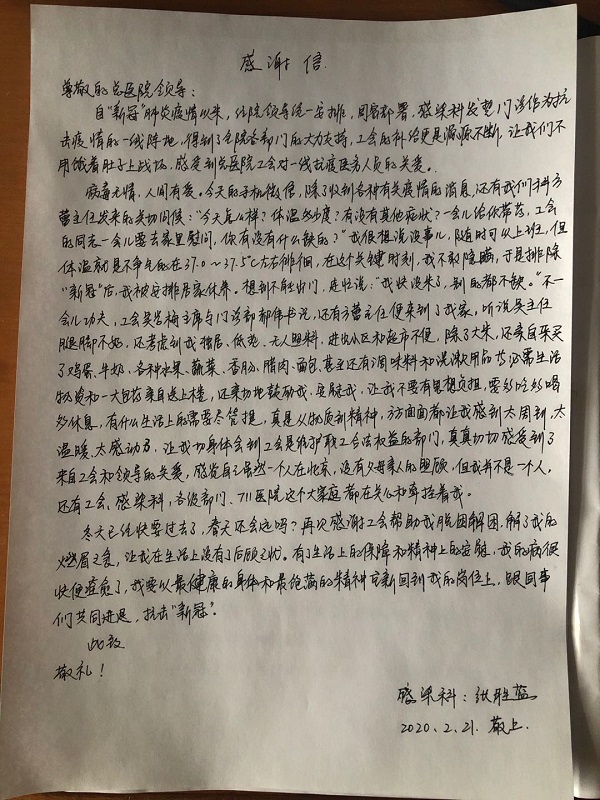 感谢信
尊敬的总医院领导：
自“新冠”肺炎疫情以来，住院领导统一安排，周密部署，感染科发热门诊作为抗
击疫情的一线阵地，得到了全院各部门的大力支持，工会的补给更是源源不断，让我们不
用饿着肚子上战场，感受到总医院工会对一线抗疫医务人员的关爱。
病毒无情，人间有爱。今天的手机微信，除了收到各种有关疫情的消息，还有我们科方
蕾主任发来的亲切问候：“今天怎么样？体温多少度？有没有其他症状？一会儿给你带药，工会
的同志一会儿要去家里慰问，你有没有什么缺的？”我很想说没事儿，随时可以上班，但
体温就是不争气的在37.0～37.5℃左右徘徊，在这个关键时刻，我不敢隐瞒，于是排除
“新冠”后，我被安排居家休养。想到不能出门，赶快说：“我快没米了，别的都不缺。”不一
会儿功夫，工会吴 梅主席与门诊部郝伟书记，还有方蕾主任便来到了我家，听说吴主任
腿脚不好，还考虑到我独居、低烧、无人照料，进出小区和超市不便，除了大米，还亲自采买
了鸡蛋、牛奶、各种水果、蔬菜、香肠、腊肉、面包，甚至还有调味料和洗漱用品等必需生活
物资和一大包药亲自送上楼，还亲切地鼓励我，安慰我，让我不要有思想负担，要多吃多喝
多休息，有什么生活上的需要尽管提，真是从物质到精神，方方面面都让我感到太周到、太
温暖、太感动了，让我切身体会到工会是维护职工合法权益的部门，真真切切感受到了
来自工会和领导的关爱，感觉自己虽然一个人在北京，没有父母亲人的照顾，但我并不是一个人，
还有工会、感染科，各级部门、711医院这个大家庭都在关心和牵挂着我。
冬天已经快要过去了，春天还会远吗？再次感谢工会帮助我脱困解困，解了我的
燃眉之急，让我在生活上没有了后顾之忧。有了生活上的保障和精神上的安慰，我的病很
快便痊愈了，我要以最健康的身体和最饱满的精神重新回到我的岗位上，跟同事
们共同进退，抗击“新冠”。
此致
敬礼！
感染科：张胜蓝
2020.2.21.敬上